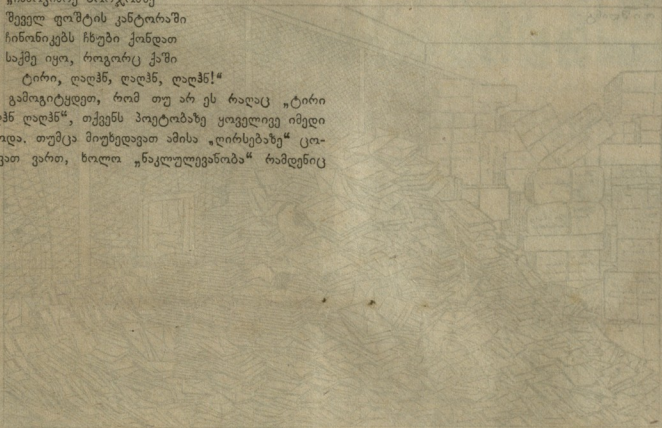 შეველ ფოშტის კანტორაში
ჩინონიკებს ჩხუბი ქონდათ
საქმე იყო, როგორც ქაში
ტირი, ღაღჰნ, ღაღჰნ, ღაღჰნ!“
გამოგიტყდეთ, რომ თუ არ ეს რაღაც „ტირი
ღაღჰნ“, თქვენს პოეტობაზე ყოველივე იმედი
თუმცა მიუხედავათ ამისა „ღირსებაზე“ ცო-
ვართ, ხოლო „ნაკლულევანობა“ რამდენიც